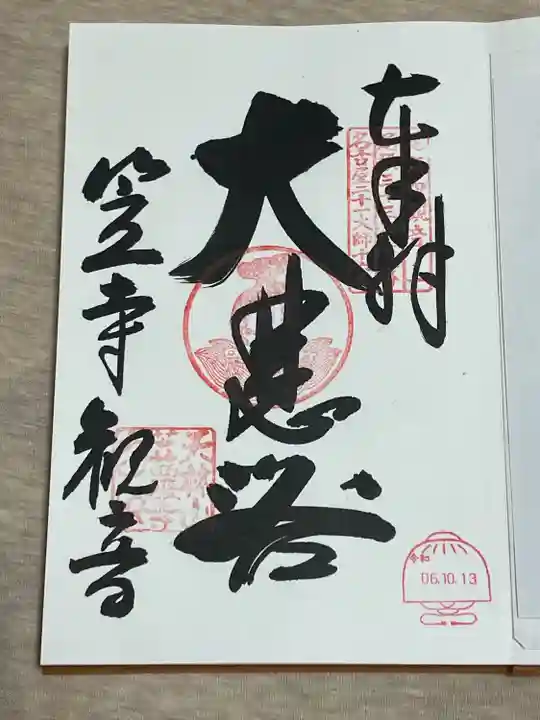 奉拝
名古屋二十一大師
大悲殿
笠寺観音
令和
06.10.13